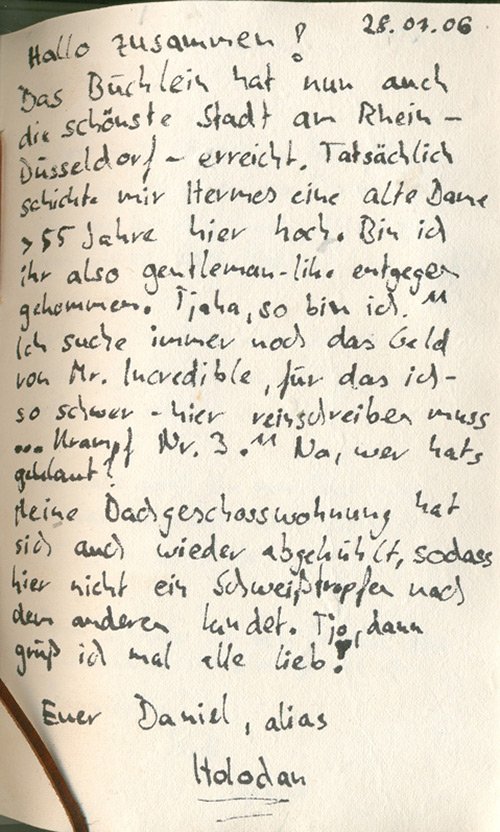 28.07.06
Hallo zusammen!
Das Büchlein hat nun auch
die schönste Stadt am Rhein -
Düsseldorf - erreicht. Tatsächlich
schickte mir Hermes eine alte Dame
>55 Jahre hier hoch. Bin ich
ihr also gentleman-like entgegen
gekommen. Tjaha, so bin ich. ^^
Ich suche immer noch das Geld
von Mr. Incredible, für das ich -
so schwer - hier reinschreiben muss
... Krampf Nr. 3. ^^ Na, wer hats
geklaut?
Meine Dachgeschosswohnung hat
sich auch wieder abgekühlt, sodass
hier nicht ein Schweißtropfen nach
dem anderen landet. Tjo, dann
grüß ich mal alle lieb!
Euer Daniel, alias
Holodan